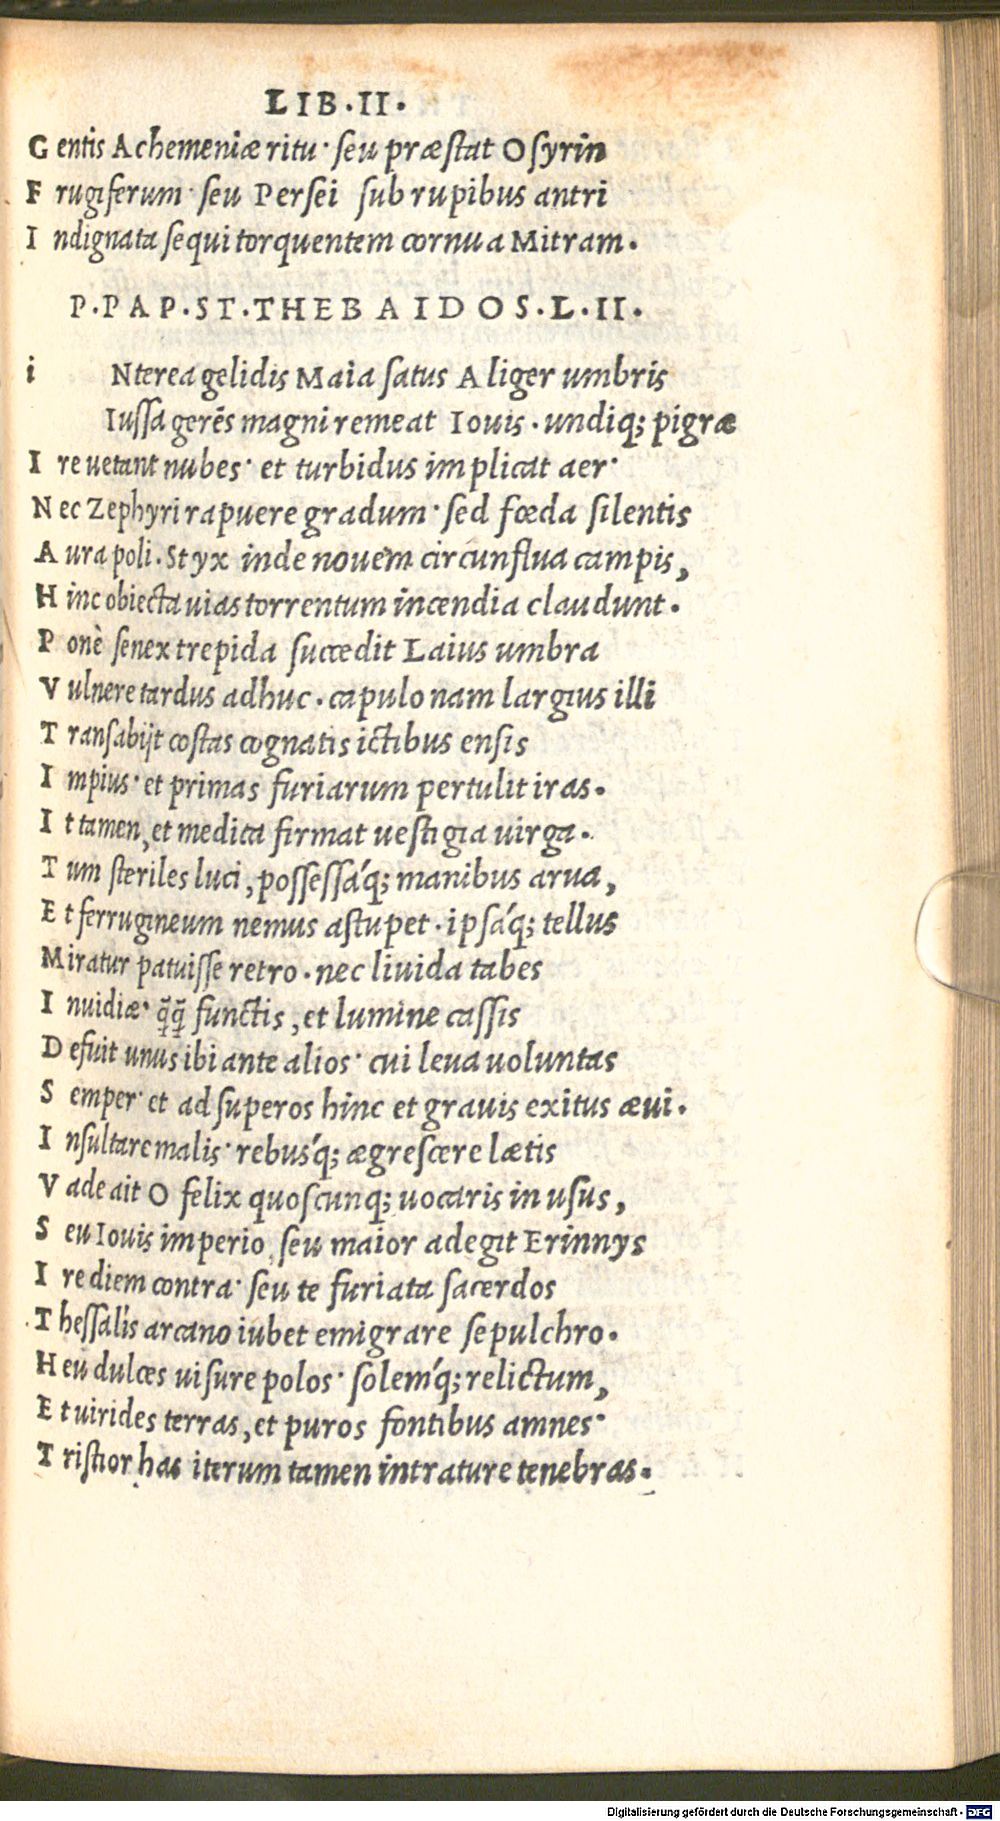 LIB.II.
Gentis Achemeniæ ritu· seu præstat Osyrin
Frugiferum· seu Persei sub rupibus antri
Indignata sequi torquentem cornua Mitram.
P.PAP.ST.THEBAIDOS.L.II.
i Nterea gelidis Maia satus Aliger umbris
Iussa gerẽs magni remeat Iouis. undiq; pigræ
Ire uetant nubes· et turbidus implicat aer·
Nec Zephyri rapuere gradum· sed fœda silentis
Aura poli. Styx inde nouem circunflua campis,
Hinc obiecta uias torrentum incendia claudunt.
Ponè senex trepida succedit Laius umbra
Vulnere tardus adhuc. capulo nam largius illi
Transabijt costas cognatis ictibus ensis
Impius· et primas furiarum pertulit iras.
It tamen, et medica firmat uestigia uirga.
Tum steriles luci, possessáq; manibus arua,
Et ferrugineum nemus astupet. ipsáq; tellus
Miratur patuisse retro. nec liuida tabes
Inuidiæ· q̃q̃ functis, et lumine cassis
Defuit unus ibi ante alios· cui leua uoluntas
Semper· et ad superos hinc et grauis exitus æui.
Insultare malis· rebuśq; ægrescere lætis
Vade ait O felix quoscunq; uocaris in usus,
Seu Iouis imperio, seu maior adegit Erinnys
Ire diem contra· seu te furiata sacerdos
Thessalis arcano iubet emigrare sepulchro.
Heu dulces uisure polos· soleḿq; relictum,
Et uirides terras, et puros fontibus amnes·
Tristior has iterum tamen intrature tenebras.
Digitalisierung gefördert durch die Deutsche Forschungsgemeinschaft - DFG